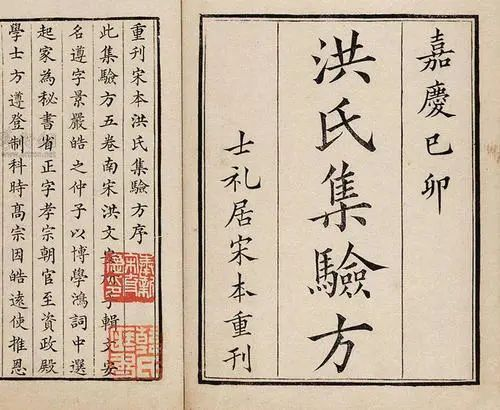 嘉慶己卯
洪氏集驗方
士礼居宋本重刊
重刊宋本洪氏集驗方序
此集驗方五卷南宋洪文輯文安
名遵字景嚴皓之仲子以博學鴻詞中選
起家為秘書省正字孝宗朝官至資政殿
學士方遵登制科時高宗因皓遠使推恩